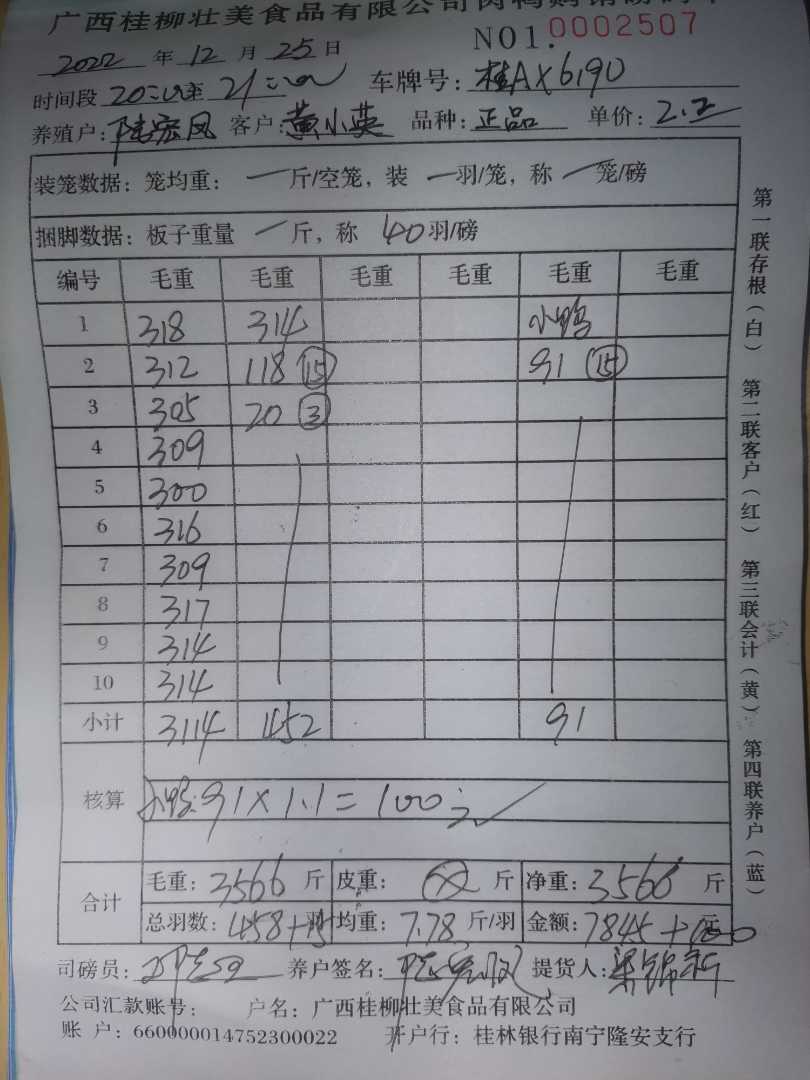 广西桂柳壮美食品有限公司肉鸭购销磅码单
2022 年 12 月 25 日 NO1. 0002507
时间段 20:00至 21:00 车牌号: 桂AX6190
养殖户: 陆宏凤 客户: 黄小英 品种: 正品 单价: 2.2
装笼数据: 笼均重: 一 斤/空笼, 装 一 羽/笼, 称 一 笼/磅
捆脚数据: 板子重量 一 斤, 称 40 羽/磅
编号 毛重 毛重 毛重 毛重 毛重 毛重
1 318 314 小鸭
2 312 118 (15) 91 (15)
3 305 20 (3)
4 309
5 300
6 316
7 309
8 317
9 314
10 314
小计 3114 452 91
核算 小鸭: 91×1.1=100元
合计 毛重: 3566 斤 皮重: 斤 净重: 3566 斤
总羽数: 458+15 羽 均重: 7.78 斤/羽 金额: 7845+100 元
司磅员: 养户签名: 陆宏凤 提货人: 梁锦新
公司汇款账号: 户名: 广西桂柳壮美食品有限公司
账 户: 660000014752300022 开户行: 桂林银行南宁隆安支行
第一联存根(白) 第二联客户(红) 第三联会计(黄) 第四联养户(蓝)